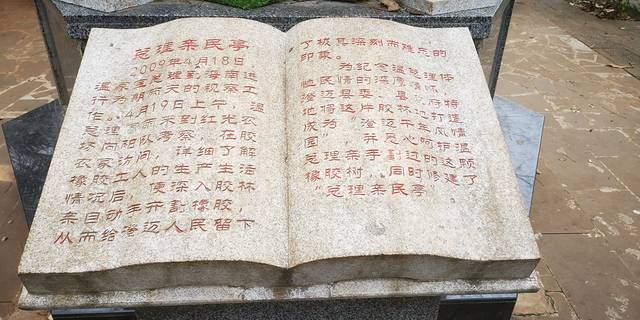 总理亲民亭
2009年4月18日，
温家宝总理到海南进
行为期两天的视察工
作。4月19日上午，温
总理亲不来到红光农
场向阳队考察，在胶
农家访问，详细了解
橡胶工人的生产生活
情况后，使深入胶林
亲自动手开割橡胶，
从而给澄迈人民留下
了极其深刻而难忘的
印象。
为纪念温总理体
恤民情的深厚情怀，
澄迈县委、县府特
地将这片胶林地打造
成为“澄迈千年风情
园”，并悉心呵护温
总理亲手割过的这颗
橡胶树，同时修建了
“总理亲民亭”